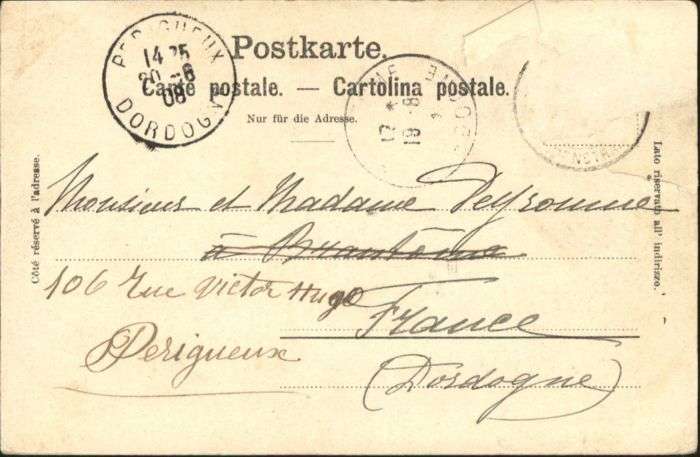 PERIGUEUX
14 25
20 -8
08
DORDOGNE
Postkarte.
Carte postale. — Cartolina postale.
Nur für die Adresse.
Côté réservé à l'adresse.
Lato riservato all' indirizzo.
Monsieur et Madame Peyronnie
à Brantôme
106 Rue Victor Hugo
France
Perigueux
(Dordogne)
12
19 -8